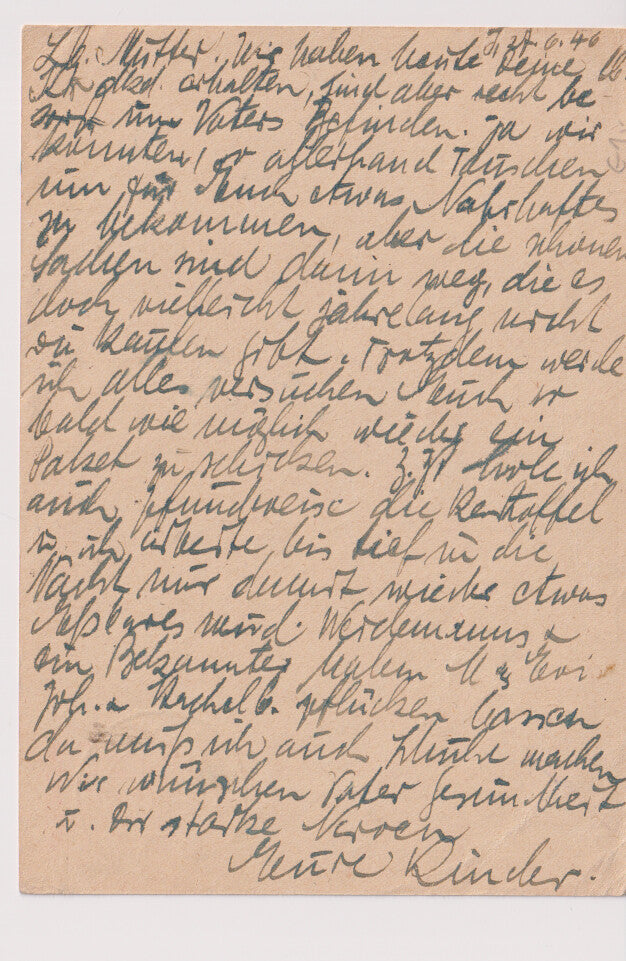 27.6.46
Lb. Mutter. Wir haben heute Deine
erhalten, sind aber recht be-
um Vaters Befinden. ja wir
könnten, so allerhand Tauschen
um für Euch etwas Nahrhaftes
zu bekommen, aber die schönen
Sachen sind dann weg, die es
doch vielleicht jahrelang nicht
zu kaufen gibt. Trotzdem werde
ich alles versuchen Euch so
bald wie möglich wieder ein
Paket zu schicken. Z. Zt. hole ich
auch pfundweise die Kartoffel
u. ich arbeite bis tief in die
Nacht nur damit wieder etwas
Eßbares wird.
ein Bekannter haben
pflücken lassen
da muß ich auch Schuhe machen
Wir wünschen Vater Gesundheit
u. Dir starke Nerven
Eure Kinder.